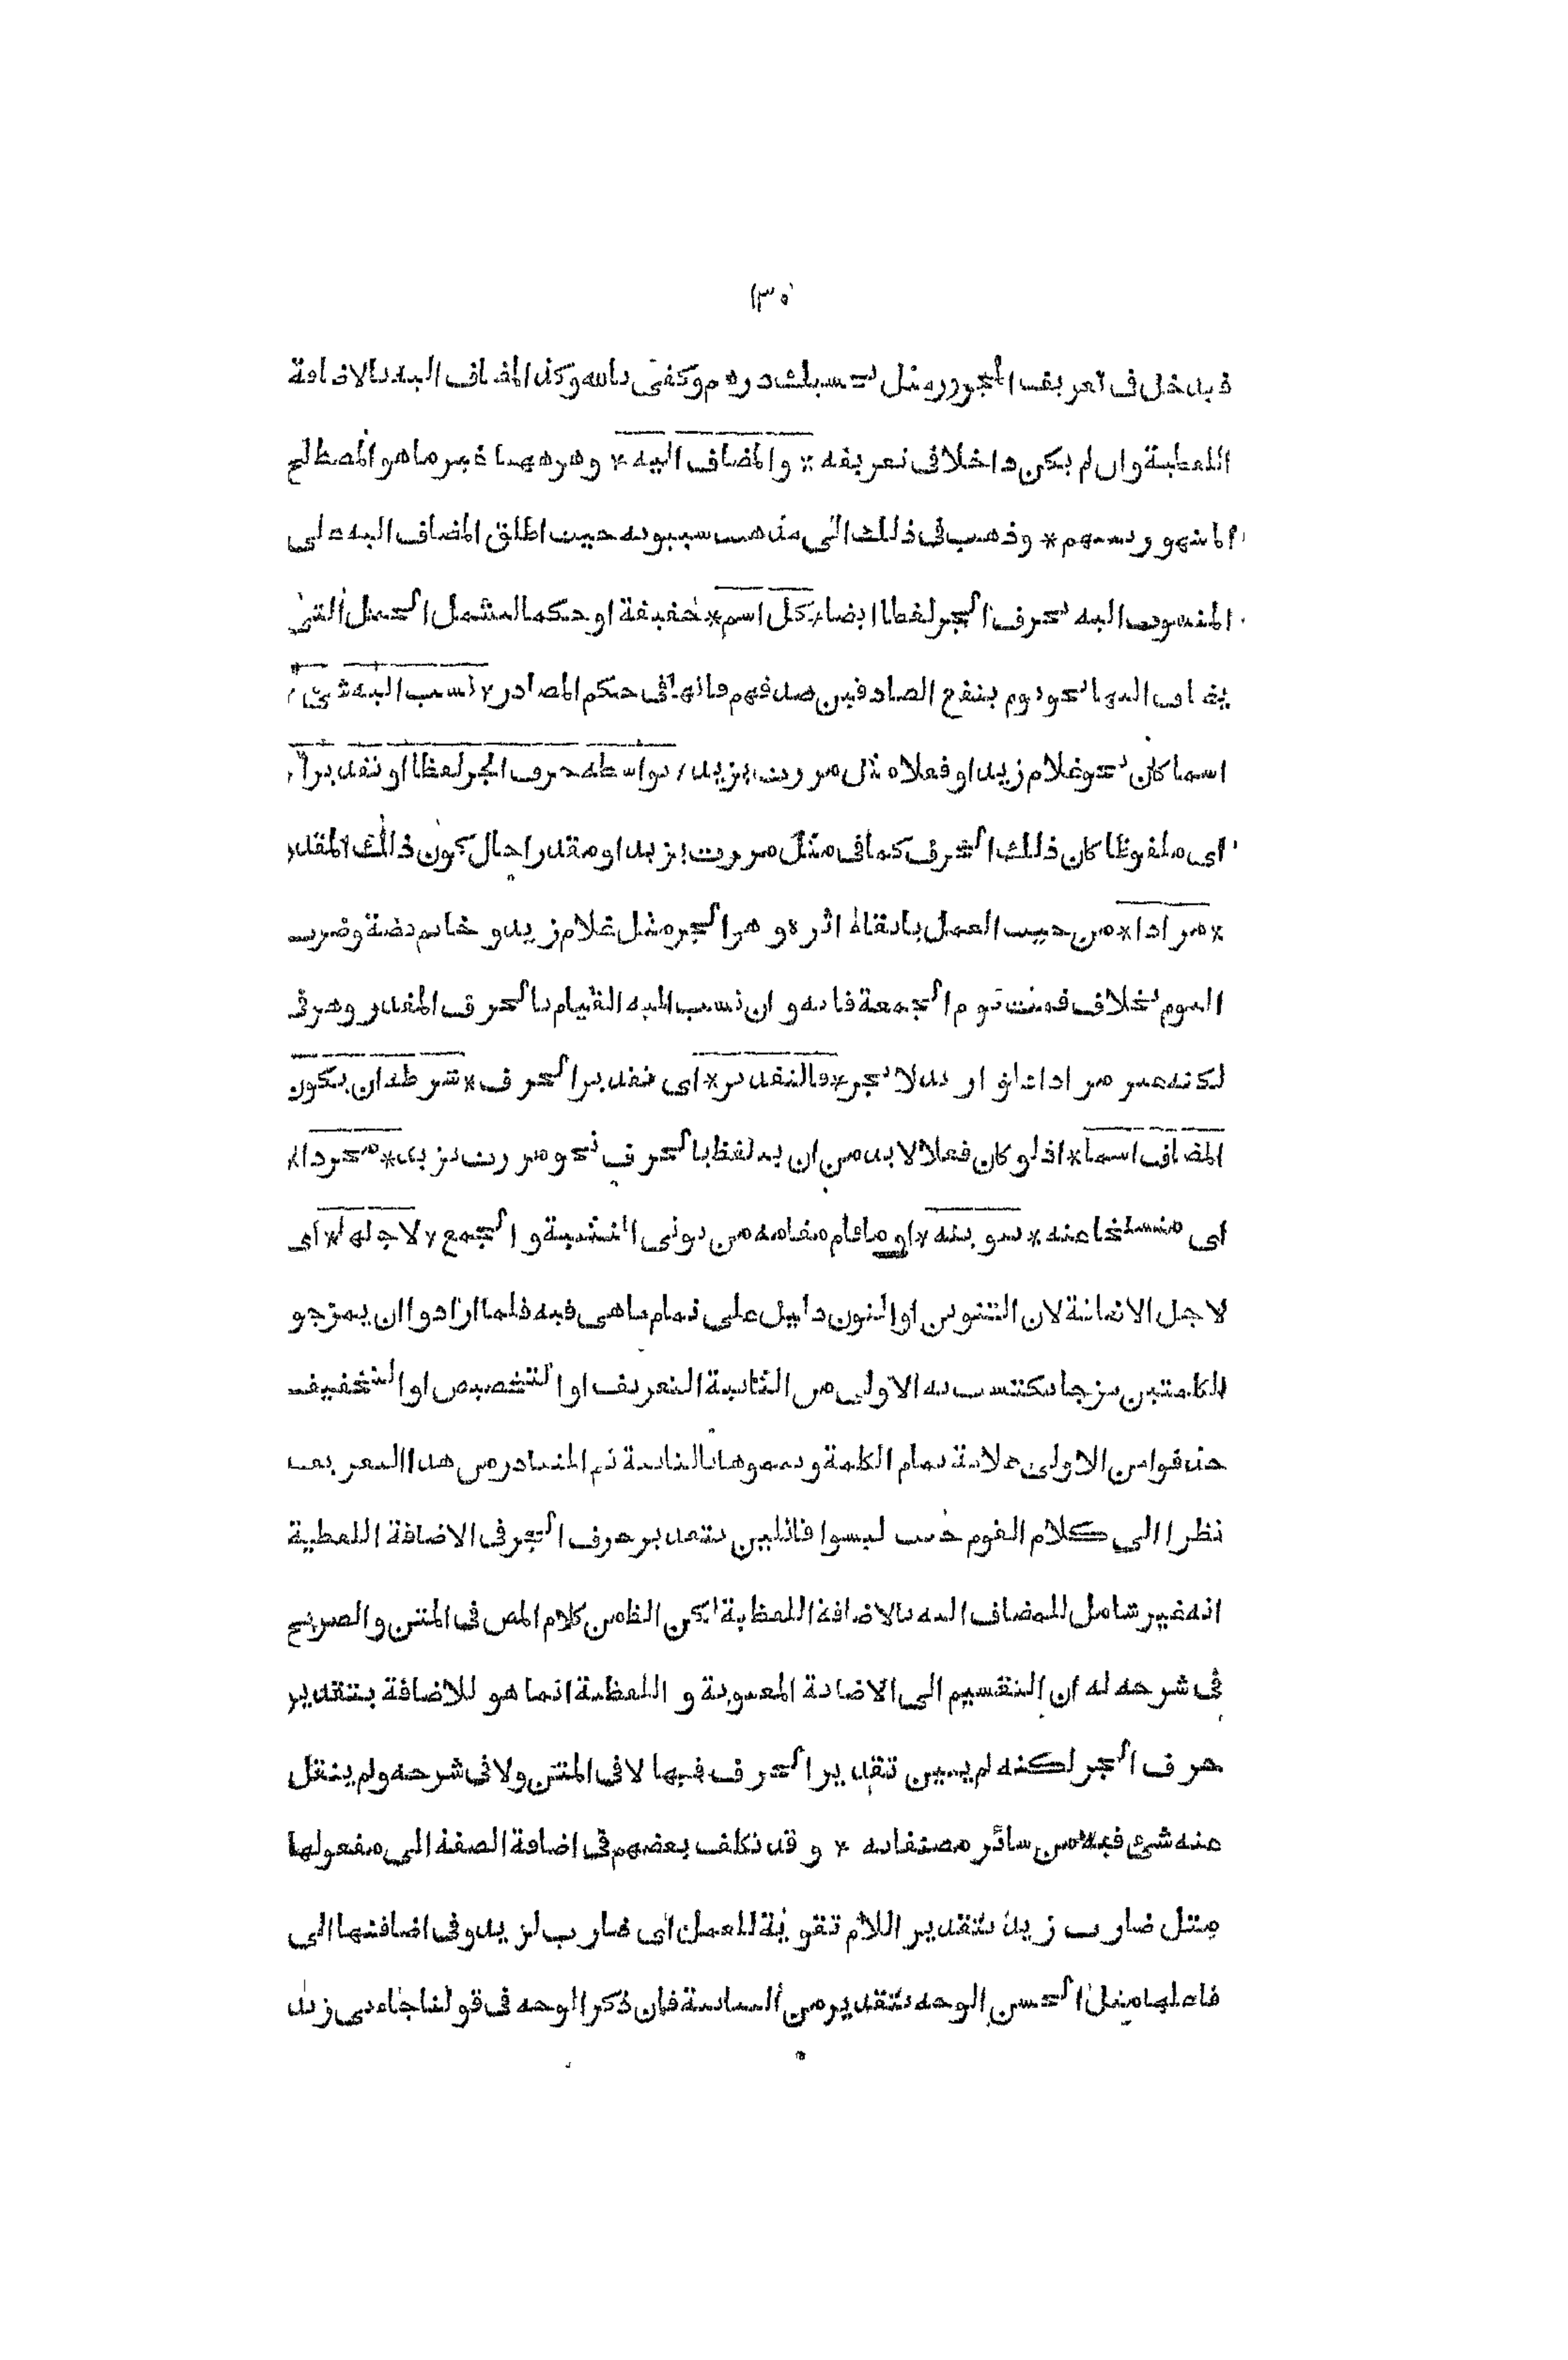 ١٣٥
فيدخل فى تعريف المجرور مثل بحسبك درهم وكفى بالله وكذا المضاف اليه بالاضافة
اللفظية وان لم يكن داخلا فى تعريفه * والمضاف اليه * وهو ههنا غير ما هو المصطلح
المشهور بينهم * وذهب فى ذلك الى مذهب سيبويه حيث اطلق المضاف اليه على
المنسوب اليه بحرف الجر لفظا ايضا * كل اسم * حقيقة او حكما ليشمل الجمل التى
يضاف اليها نحو يوم ينفع الصادقين صدقهم فانها فى حكم المصادر * نسب اليه شئ *
اسما كان نحو غلام زيد او فعلا مثل مررت بزيد * بواسطة حرف الجر لفظا او تقديرا *
اى ملفوظا كان ذلك الحرف كما فى مثل مررت بزيد او مقدرا حال كون ذلك المقدر
* مرادا * من حيث العمل بابقاء اثره وهو الجر مثل غلام زيد و خاتم فضة وضرب
اليوم بخلاف قمت يوم الجمعة فانه و ان نسب اليه القيام بالحرف المقدر وهو فى
لكنه غير مراد اذ لو اريد لانجر * فالتقدير * اى تقدير الحرف * شرطه ان يكون
المضاف اسما * اذ لو كان فعلا لا بد من ان يتلفظ بالحرف نحو مررت بزيد * مجردا *
اى منسلخا عنه * تنوينه * او ما قام مقامه من نونى التثنية و الجمع * لاجلها * اى
لاجل الاضافة لان التنوين او النون دليل على تمام ما هى فيه فلما ارادوا ان يمزجو
الكلمتين مزجا يكتسب به الاولى من الثانية التعريف او التخصيص او التخفيف
حذفوا من الاولى علامة تمام الكلمة وتمموها بالثانية ثم المتبادر من هذا التعريف
نظرا الى كلام القوم حيث ليسوا قائلين بتقدير حرف الجر فى الاضافة اللفظية
انه غير شامل للمضاف اليه بالاضافة اللفظية لكن الظ من كلام المص فى المتن و الصريح
فى شرحه له ان التقسيم الى الاضافة المعنوية و اللفظية انما هو للاضافة بتقدير
حرف الجر لكنه لم يبين تقدير الحرف فيها لا فى المتن ولا فى شرحه ولم ينقل
عنه شئ فيه من سائر مصنفاته * و قد تكلف بعضهم فى اضافة الصفة الى مفعولها
مثل ضارب زيد بتقدير اللام تقوية للعمل اى ضارب لزيد وفى اضافتها الى
فاعلها مثل الحسن الوجه بتقدير من البيانية فان ذكر الوجه فى قولنا جاءنى زيد